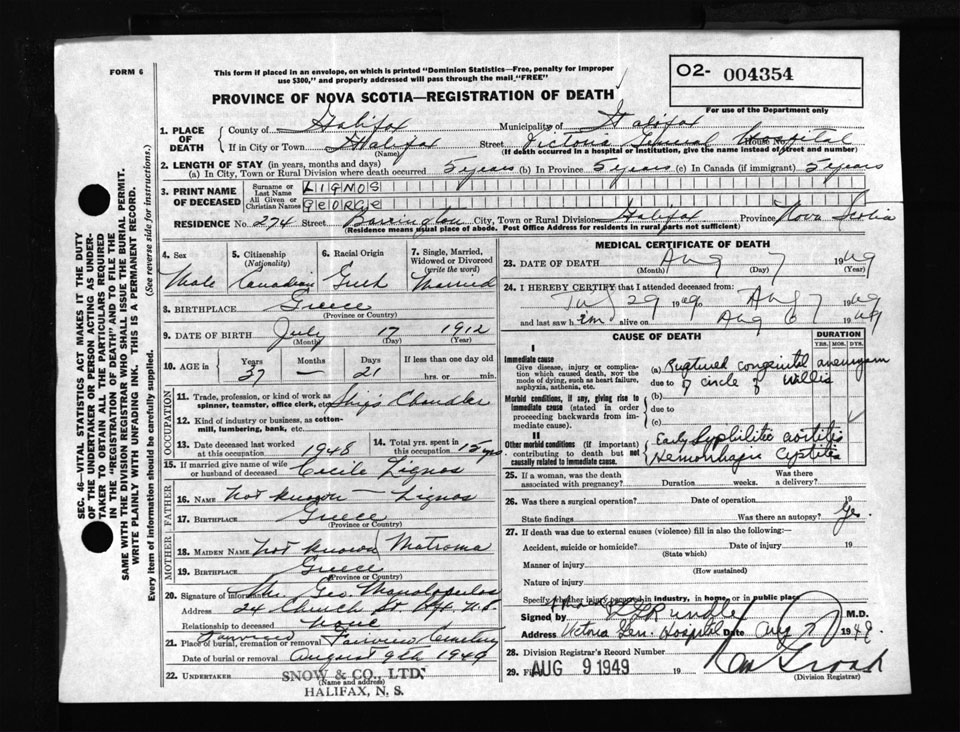 FORM 6
This form if placed in an envelope, on which is printed "Dominion Statistics—Free, penalty for improper
use $300," and properly addressed will pass through the mail "FREE"
O2- 004354
For use of the Department only
PROVINCE OF NOVA SCOTIA—REGISTRATION OF DEATH
SEC. 46—VITAL STATISTICS ACT MAKES IT THE DUTY
OF THE UNDERTAKER OR PERSON ACTING AS UNDER-
TAKER TO OBTAIN ALL THE PARTICULARS REQUIRED
IN THE "REGISTRATION OF DEATH" AND TO FILE THE
SAME WITH THE DIVISION REGISTRAR WHO SHALL ISSUE THE BURIAL PERMIT.
WRITE PLAINLY WITH UNFADING INK. THIS IS A PERMANENT RECORD.
Every item of information should be carefully supplied. (See reverse side for instructions.)
1. PLACE OF DEATH
County of Halifax Municipality of Halifax
If in City or Town Halifax Street Victoria General Hospital House No.
(Name) (If death occurred in a hospital or institution, give the name instead of street and number)
2. LENGTH OF STAY (in years, months and days)
(a) In City, Town or Rural Division where death occurred 5 years (b) In Province 5 years (c) In Canada (if immigrant) 5 years
3. PRINT NAME OF DECEASED
Surname or Last Name LIGNOS
All Given or Christian Names GEORGE
RESIDENCE No. 274 Street Barrington City, Town or Rural Division Halifax Province Nova Scotia
(Residence means usual place of abode. Post Office Address for residents in rural parts not sufficient)
4. Sex 5. Citizenship (Nationality) 6. Racial Origin 7. Single, Married, Widowed or Divorced (write the word)
Male Canadian Greek Married
8. BIRTHPLACE Greece
(Province or Country)
9. DATE OF BIRTH July 17 1912
(Month) (Day) (Year)
10. AGE in Years Months Days If less than one day old
37 — 21 hrs. or min.
OCCUPATION
11. Trade, profession, or kind of work as
spinner, teamster, office clerk, etc. Ship's Chandler
12. Kind of industry or business, as cotton-
mill, lumbering, bank, etc.
13. Date deceased last worked
at this occupation 1948
14. Total yrs. spent in
this occupation 15 yrs
15. If married give name of wife
or husband of deceased Cecile Lignos
FATHER
16. NAME Not known — Lignos
17. BIRTHPLACE Greece
(Province or Country)
MOTHER
18. MAIDEN NAME Not known Matroma
19. BIRTHPLACE Greece
(Province or Country)
20. Signature of informant Mr. Geo. Manolopoulos
Address 24 Church St Hfx N.S.
Relationship to deceased None
21. Place of burial, cremation or removal Fairview Cemetery
Date of burial or removal August 9th 1949
22. UNDERTAKER SNOW & CO., LTD.
(Name and address)
HALIFAX, N. S.
MEDICAL CERTIFICATE OF DEATH
23. DATE OF DEATH Aug 7 1949
(Month) (Day) (Year)
24. I HEREBY CERTIFY that I attended deceased from:
July 29 1949 to Aug 7 1949
and last saw him alive on Aug 6 1949
CAUSE OF DEATH
DURATION
YRS. MOS. DYS.
I
Immediate cause
Give disease, injury or compli-
cation which caused death, NOT the
mode of dying, such as heart failure,
asphyxia, asthenia, etc.
(a) Ruptured congenital aneurysm
due to of circle of Willis
Morbid conditions, if any, giving rise to
immediate cause (stated in order
proceeding backwards from im-
mediate cause).
(b)
due to
(c)
II
Other morbid conditions (if important)
contributing to death but not
causally related to immediate cause.
Early Syphilitic aortitis
Hemorrhagic Cystitis
25. If a woman, was the death
associated with pregnancy? Duration weeks. Was there
a delivery?
26. Was there a surgical operation? Date of operation 19
State findings Was there an autopsy? Yes
27. If death was due to external causes (violence) fill in also the following:—
Accident, suicide or homicide? Date of injury 19
(State which)
Manner of injury
(How sustained)
Nature of injury
Specify whether injury occurred in industry, in home, or in public place
Signed by M.D.
Address Victoria Gen. Hospital Date Aug 7 1949
28. Division Registrar's Record Number
29. Filed AUG 9 1949 19
(Division Registrar)